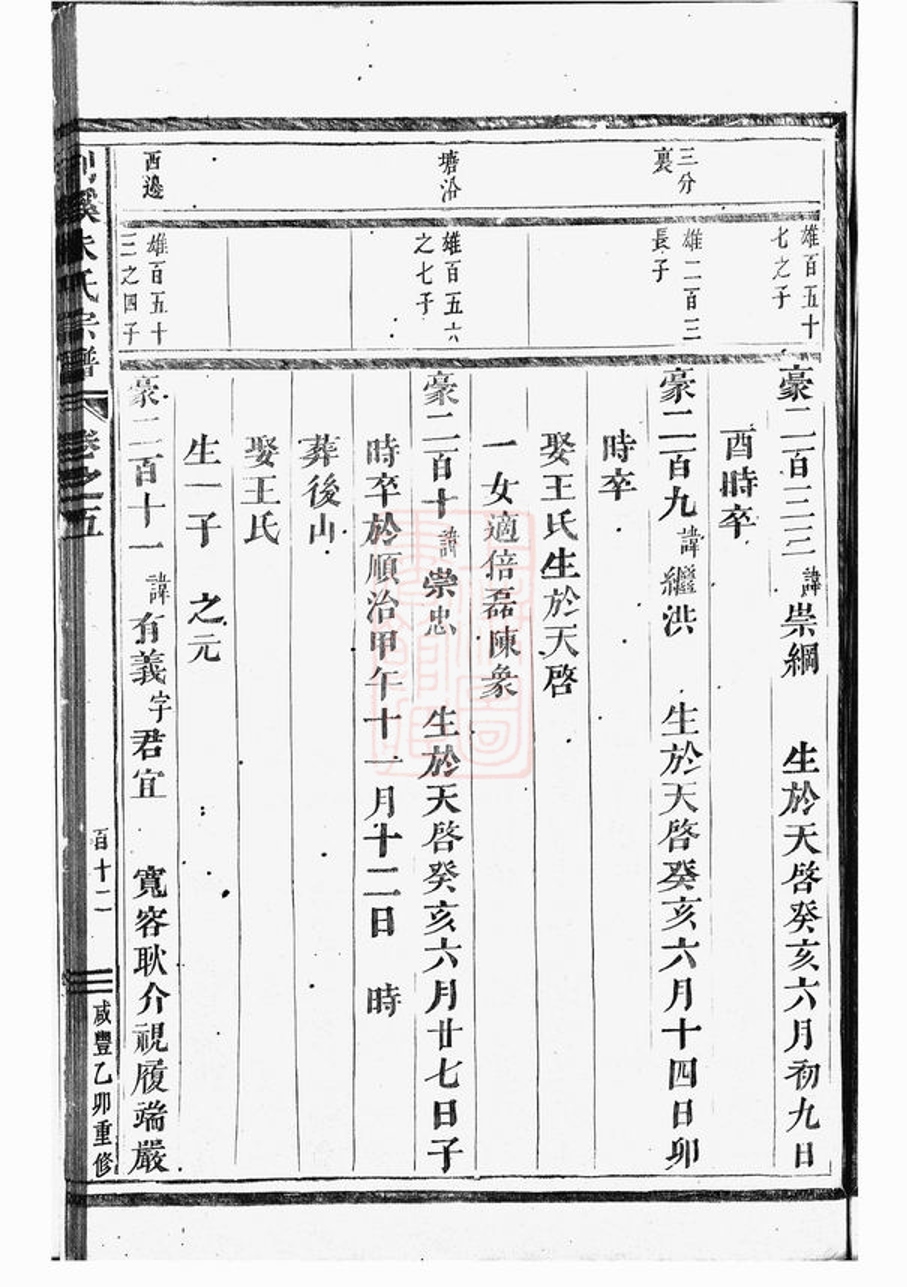 三分
裏
塘沿
西邊
雄百五十
七之子
雄二百三
長子
雄百五六
之七子
雄百五十
三之四子
豪二百三三 諱崇綱 生於天啓癸亥六月初九日
酉時卒
豪二百九 諱繼洪 生於天啓癸亥六月十四日卯
時卒
娶王氏生於天啓
一女適倍磊陳彖
豪二百十 諱崇忠 生於天啓癸亥六月廿七日子
時卒於順治甲午十一月十二日 時
葬後山
娶王氏
生一子 之元
豪二百十一 諱有義字君宜 寬容耿介視履端嚴
溪朱氏宗譜 卷之五 百十二 咸豐乙卯重修